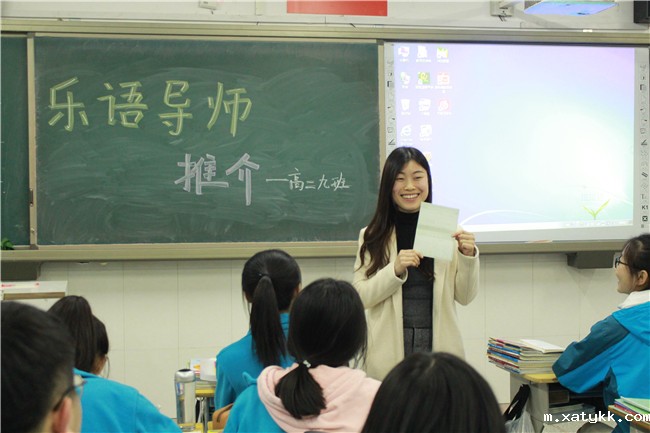 乐语导师
推介—高二九班
m.xatykk.com